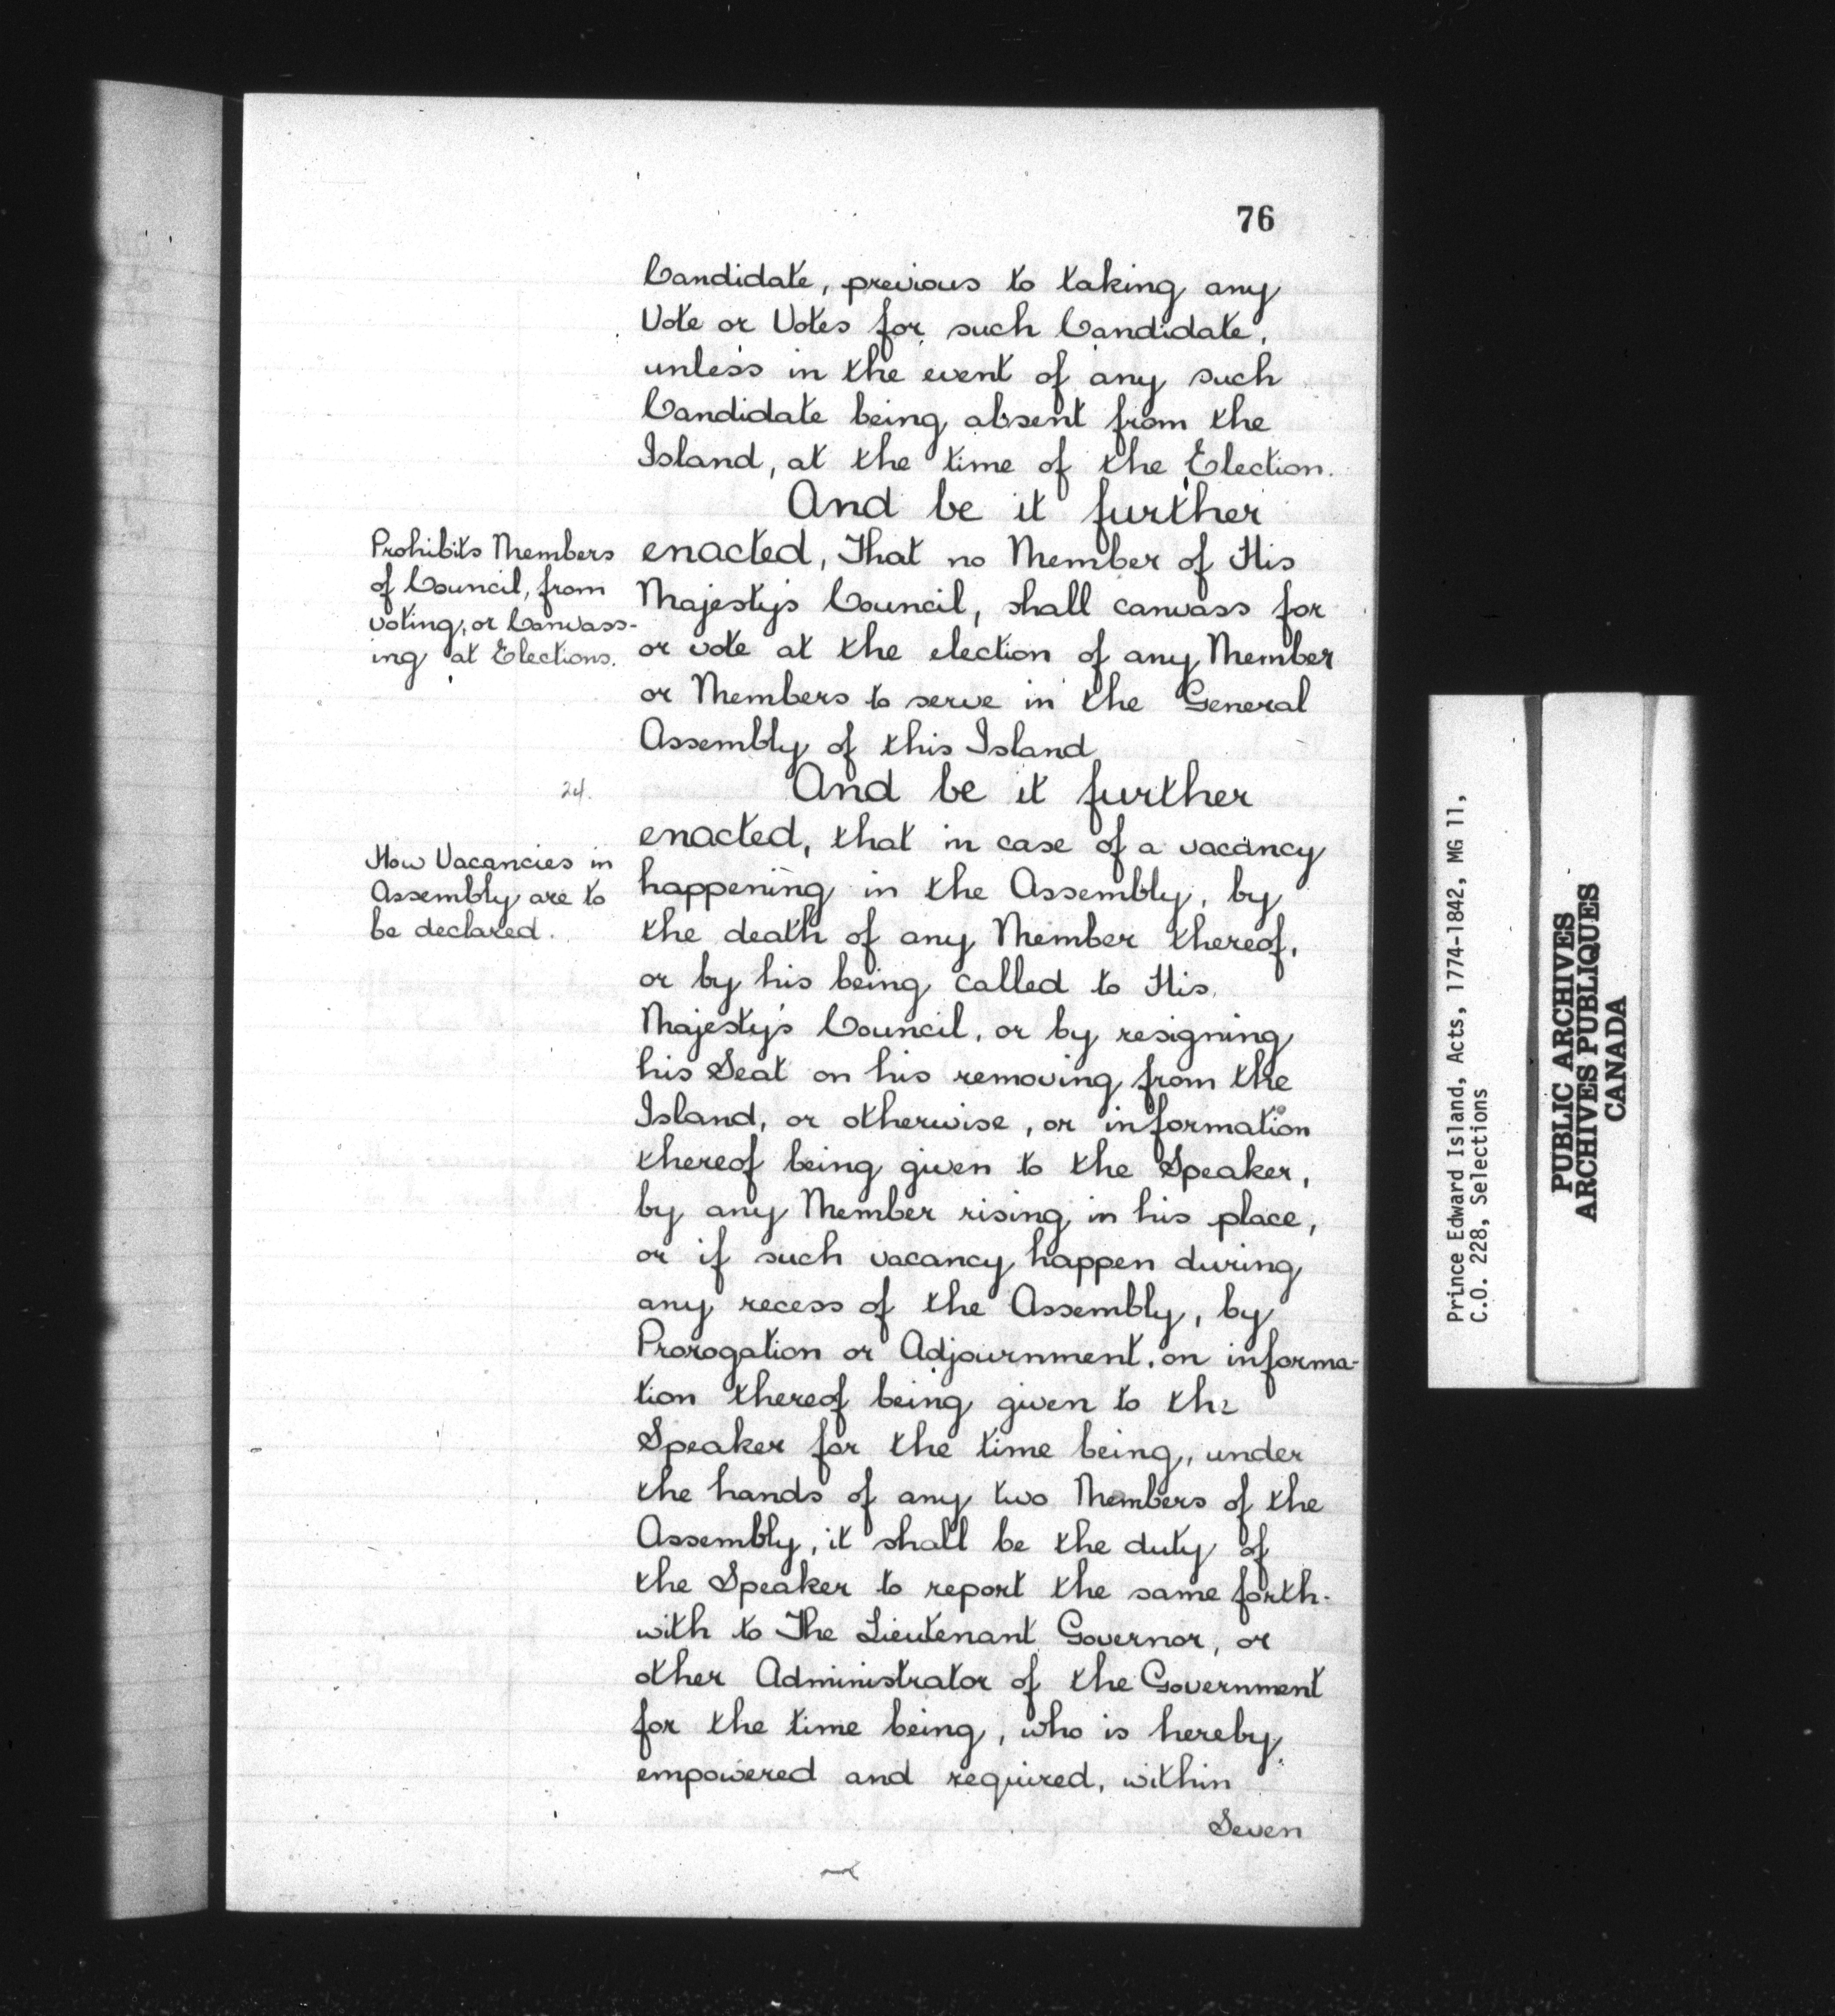 76
Candidate, previous to taking any
Vote or Votes for such Candidate,
unless in the event of any such
Candidate being absent from the
Island, at the time of the Election.
And be it further
Prohibits Members
of Council, from
voting, or Canvass-
ing at Elections.
enacted, That no Member of His
Majesty's Council, shall canvass for
or vote at the election of any Member
or Members to serve in the General
Assembly of this Island
24.
And be it further
How Vacancies in
Assembly are to
be declared.
enacted, that in case of a vacancy
happening in the Assembly, by
the death of any Member thereof,
or by his being called to His
Majesty's Council, or by resigning
his Seat on his removing from the
Island, or otherwise, or information
thereof being given to the Speaker,
by any Member rising in his place,
or if such vacancy happen during
any recess of the Assembly, by
Prorogation or Adjournment, on informa-
tion thereof being given to the
Speaker for the time being, under
the hands of any two Members of the
Assembly, it shall be the duty of
the Speaker to report the same forth-
with to The Lieutenant Governor, or
other Administrator of the Government
for the time being, who is hereby
empowered and required, within
Seven
Prince Edward Island, Acts, 1774-1842, MG 11,
C.O. 228, Selections
PUBLIC ARCHIVES
ARCHIVES PUBLIQUES
CANADA